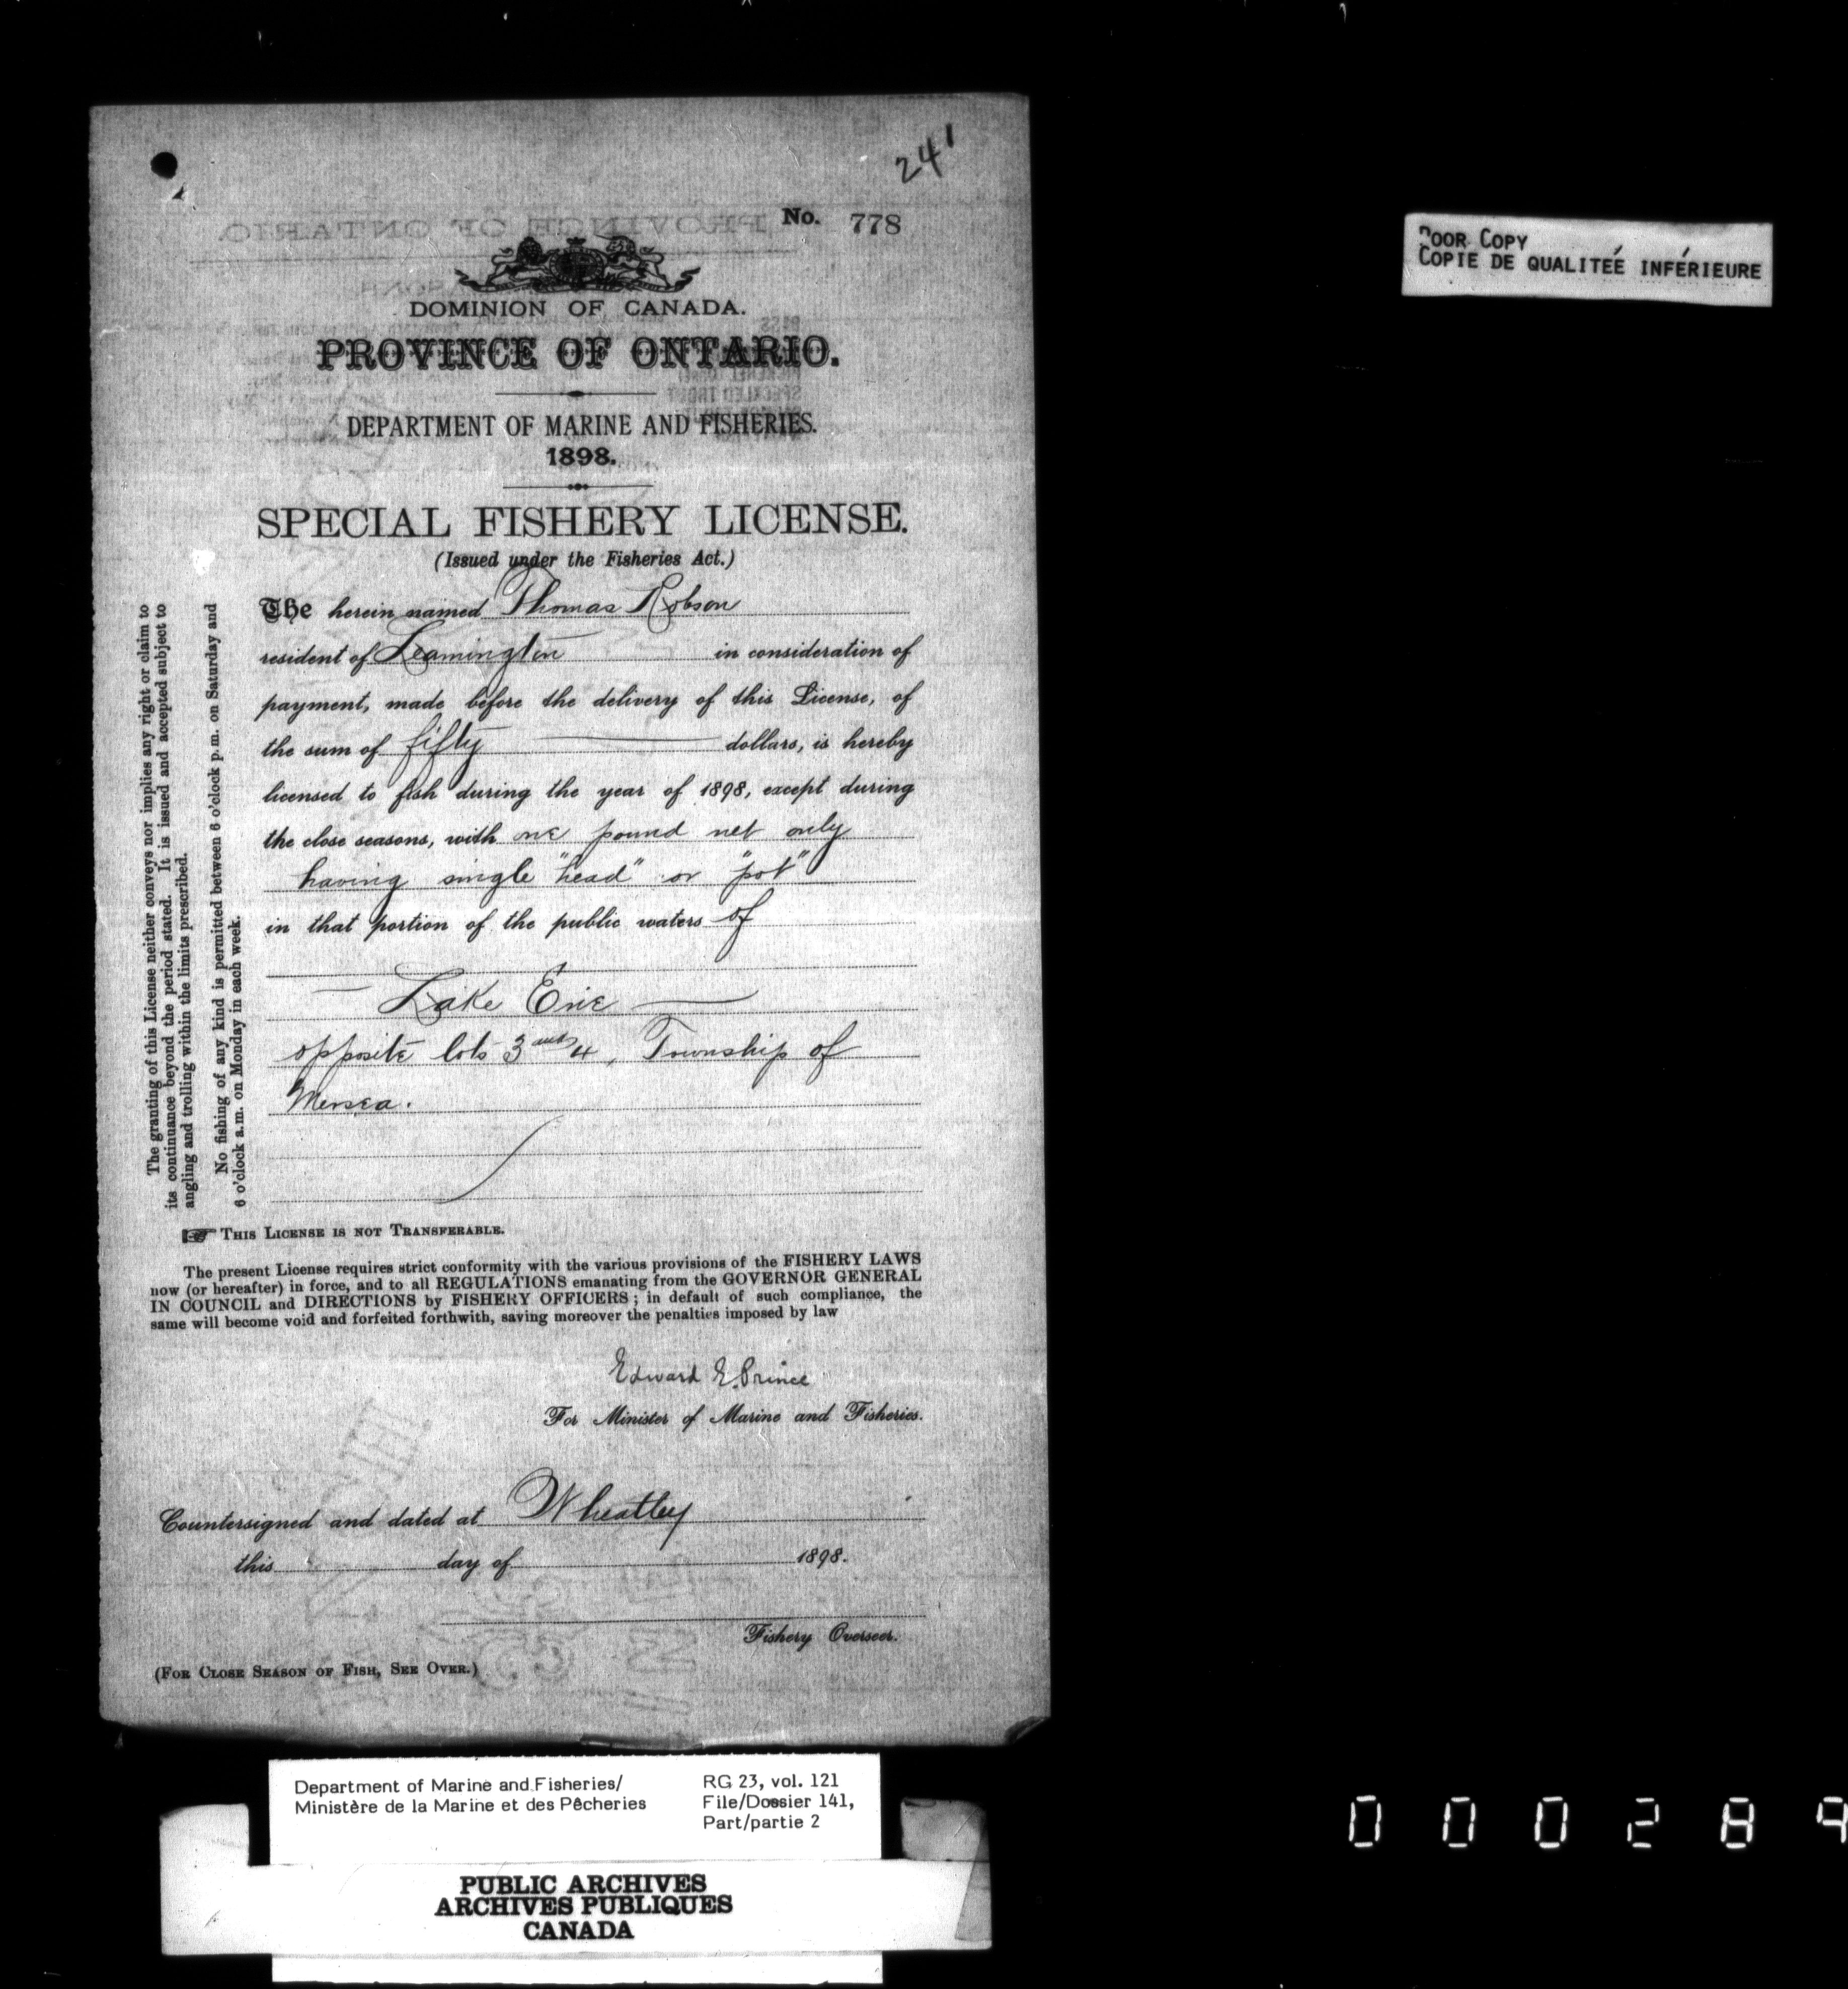 241
No. 778
DOMINION OF CANADA.
PROVINCE OF ONTARIO.
DEPARTMENT OF MARINE AND FISHERIES.
1898.
SPECIAL FISHERY LICENSE.
(Issued under the Fisheries Act.)
The herein named Thomas Robson
resident of Leamington in consideration of
payment, made before the delivery of this License, of
the sum of fifty dollars, is hereby
licensed to fish during the year of 1898, except during
the close seasons, with one pound net only
having single "head" or "pot"
in that portion of the public waters of
Lake Erie
opposite lots 3 and 4, Township of
Mersea.
The granting of this License neither conveys nor implies any right or claim to
its continuance beyond the period stated. It is issued and accepted subject to
angling and trolling within the limits prescribed.
No fishing of any kind is permitted between 6 o'clock p.m. on Saturday and
6 o'clock a.m. on Monday in each week.
THIS LICENSE IS NOT TRANSFERABLE.
The present License requires strict conformity with the various provisions of the FISHERY LAWS
now (or hereafter) in force, and to all REGULATIONS emanating from the GOVERNOR GENERAL
IN COUNCIL and DIRECTIONS by FISHERY OFFICERS; in default of such compliance, the
same will become void and forfeited forthwith, saving moreover the penalties imposed by law
Edward E. Prince
For Minister of Marine and Fisheries.
Countersigned and dated at Wheatley
this day of 1898.
Fishery Overseer.
(FOR CLOSE SEASON OF FISH, SEE OVER.)
POOR COPY
COPIE DE QUALITEÉ INFÉRIEURE
Department of Marine and Fisheries/
Ministère de la Marine et des Pêcheries
RG 23, vol. 121
File/Dossier 141,
Part/partie 2
PUBLIC ARCHIVES
ARCHIVES PUBLIQUES
CANADA
000289